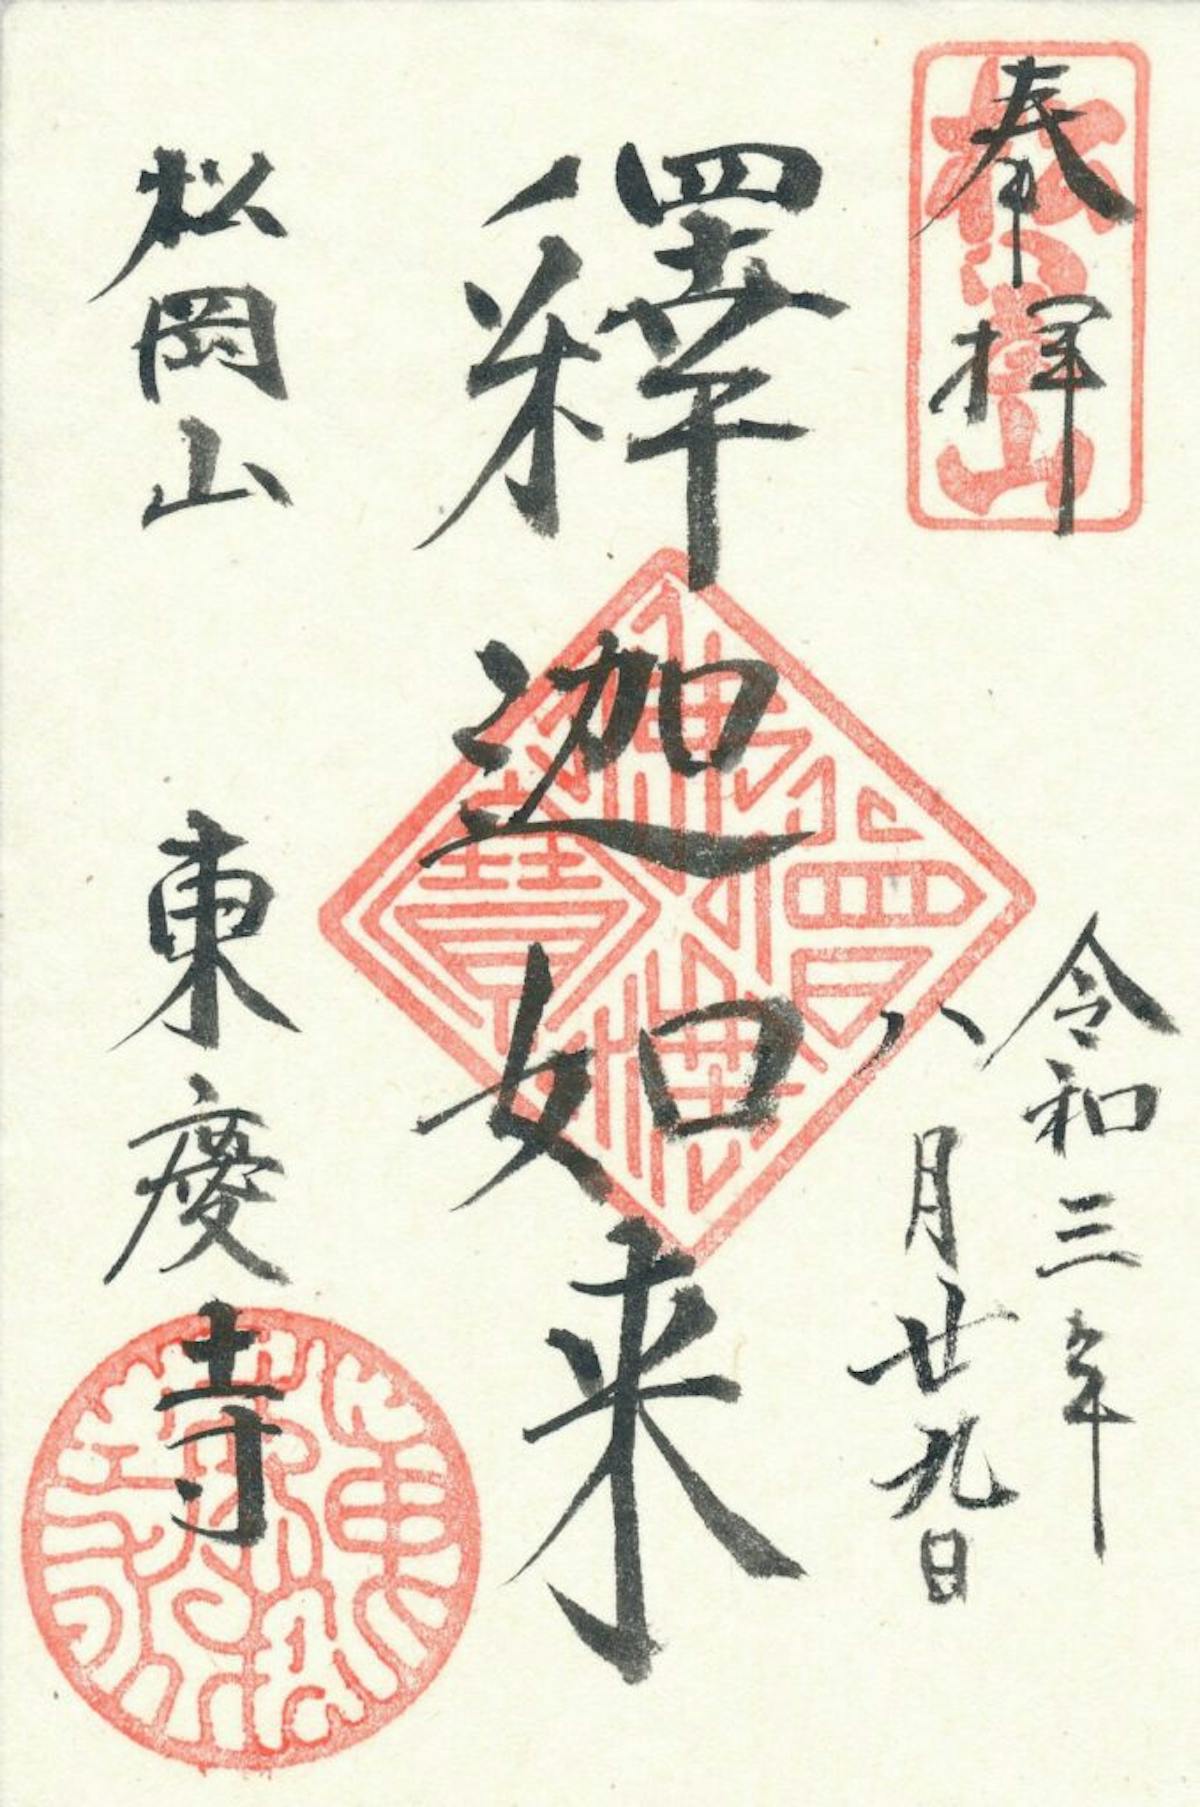 奉拝
松岡山
令和三年
八月廿九日
釋迦如来
佛法僧寶
松岡山
東慶寺
東慶寺